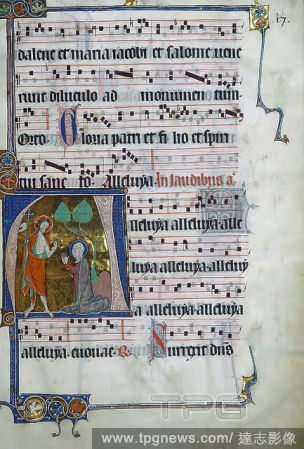 17.
dalene et maria iacobi et salome uene
runt diluculo ad monumentum.
Orto. Gloria patri et fi lio et spiri
tui sanc to. Alleluya. In laudibus a.
Alleluya alleluya alle
luya alleluya alleluya
a alleluya alleluya
alleluya. euouae. R. Surrexit dns
TPG
www.tpgnews.com/ 達志影像